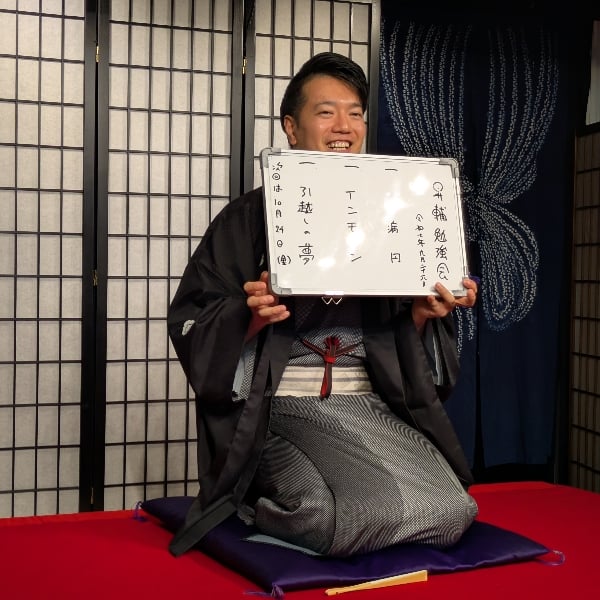 昇輔 勉強会
令和七年九月二十六日
一 円
一 インモン
一 引越しの夢
次回は10月24日(金)